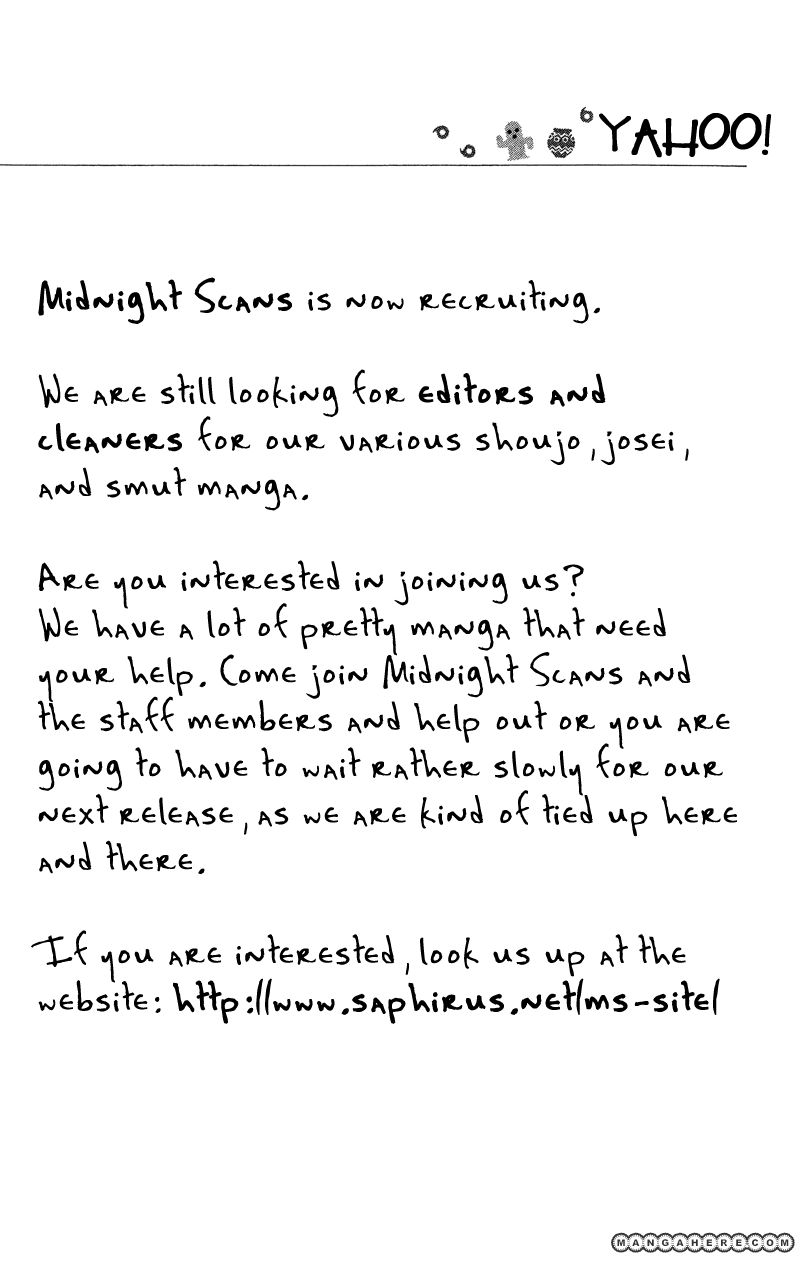 YAHOO!
Midnight Scans is now recruiting.
We are still looking for editors and
cleaners for our various shoujo, josei,
and smut manga.
Are you interested in joining us?
We have a lot of pretty manga that need
your help. Come join Midnight Scans and
the staff members and help out or you are
going to have to wait rather slowly for our
next release, as we are kind of tied up here
and there.
If you are interested, look us up at the
website: http://www.saphirus.net/ms-site/
MANGAHERE.COM